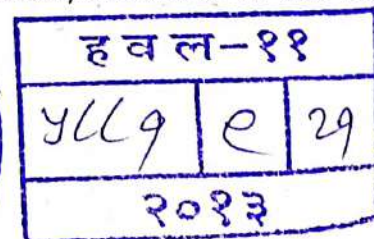 हवल-११
५८८१ ९ २१
२०१३